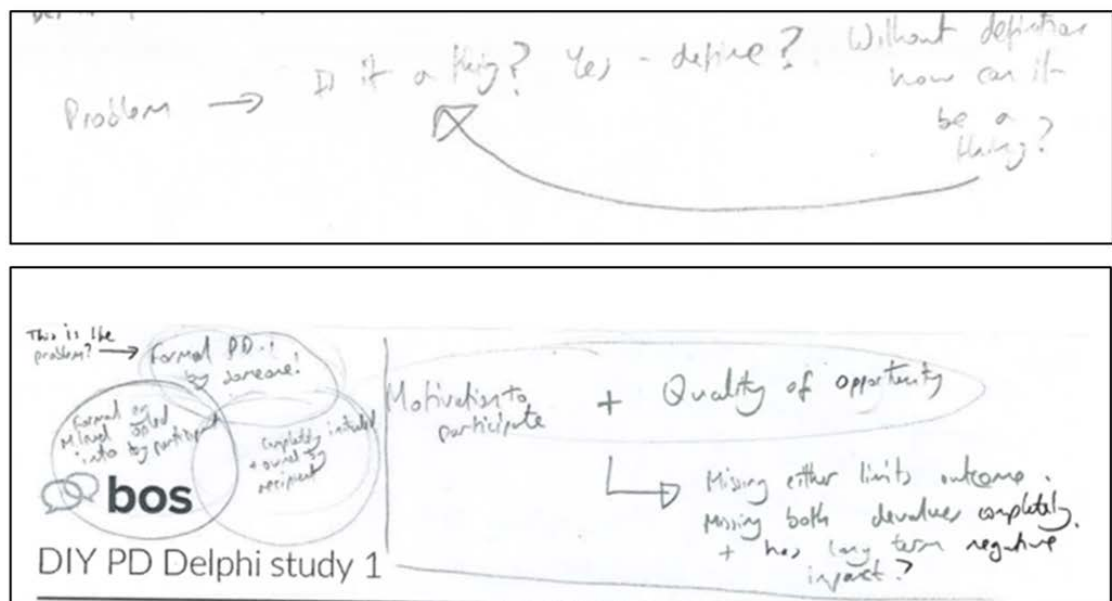 Problem → Is it a thing? Yes - define? Without definition
how can it
be a
thing?
This is the
problem? →
Formal PD
by someone!
Formal or
opted
into by participant
Completely initiated
+ owned by
recipient
bos
DIY PD Delphi study 1
Motivation to
participate
+ Quality of opportunity
Missing either limits outcome.
Missing both devalues completely.
+ has long term negative
impact?